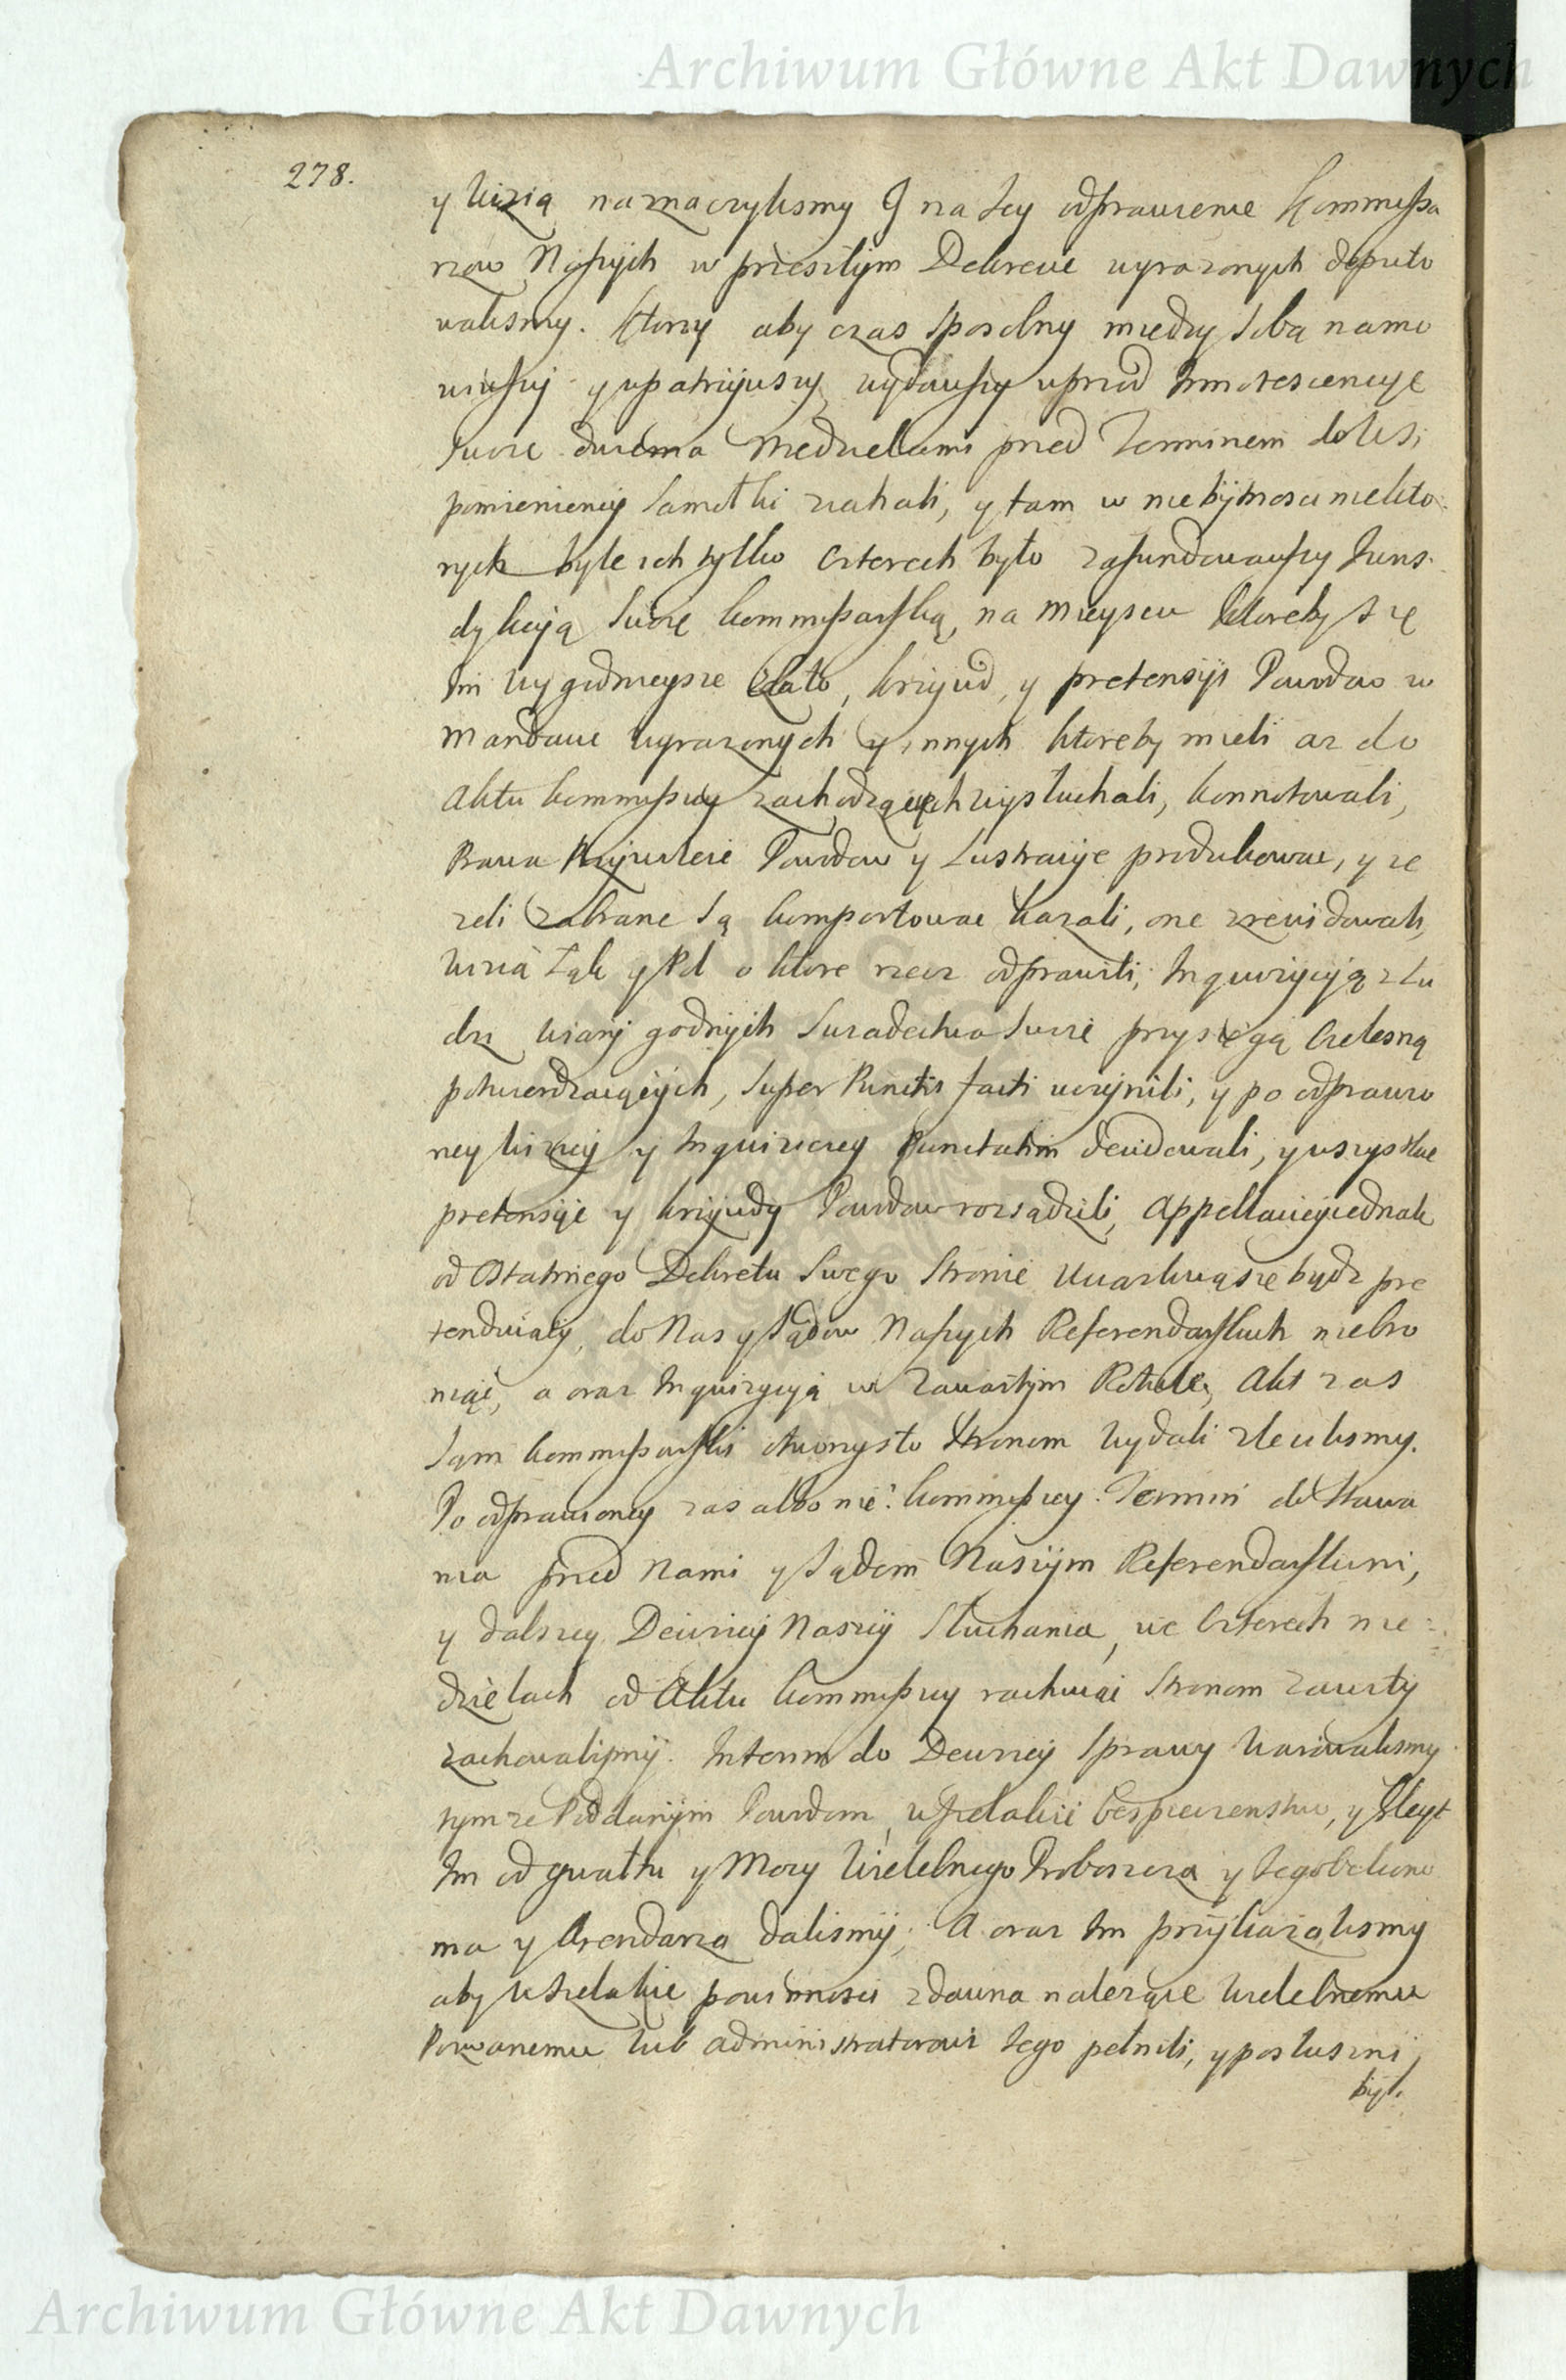 Archiwum Główne Akt Dawnych
278.
y Wizią naznaczylismy J na Jey odprawienie Kommissa
rzow Naszych w przeszłym Dekrecie wyrazonych deputo
walismy. Ktorzy aby czas sposobny między sobą namo
wiwszy y upatrzywszy, wydawszy wprzod Innotescencye
swoie dwiema Niedzielami przed Terminem do Wsi
pomienieney Samotki ziahali, y tam w niebytnosci niekto
rych byle ich tylko czterech było zafundowawszy Juris-
dykcyą swoię kommissarską, na mieyscu ktoreby się
Im wygodnieysze zdało, krzywd, y pretensyi Powodow w
Mandacie wyrazonych y innych ktoreby mieli az do
Aktu kommissyi zachodzących wysłuchali, konnotowali,
Prawa Przywileie Powodow y Lustracye produkowac, y ie
zeli zabrane są komportowac kazali, one zrewidowali,
Wizią Łąk y Pol o ktore rzecz odprawili, Inquizycyą z Lu
dzi wiary godnych Swiadectwa swoie przysięgą cielesną
potwierdzaiących, super Punctis facti uczynili, y po odprawio
ney wizyi y Inquizicyey Punctatim decidowali, y wszystkie
pretensye y krzywdy Powodow rozsądzili, Appellacyey iednak
od Ostatniego Dekretu swego Stronie Uciązliwą się bydz pre
tenduiący, do Nas y Sądow Naszych Referendarskich niebro
niąc, a oraz Inquizycyą w Zawartym Rotule, Akt zas
Sam kommissarski otworzysto Stronom wydali zlecilismy.
Po odprawioney zas albo nie: kommissyey: Termin do Stawa
nia przed Nami y Sądem Naszym Referendarskim,
y dalszey Decizyey Naszey Słuchania, we czterech nie-
dzielach od Aktu kommissyey rachuiąc Stronom zawity
zachowalismy. Interim do Decizyey Sprawy Warowalismy
tymze Poddanym Powodom wszelakie bespieczenstwo, y Gleyt
Im od gwałtu y Mocy Wielebnego Proboszcza y Jego Ekono
ma y Arendarza dalismy; A oraz Im przykazalismy
aby wszelakie powinnosci zdawna nalezące Wielebnemu
Pozwanemu lub administratorowi Jego pełnili, y posłuszni
byli.
Archiwum Główne Akt Dawnych